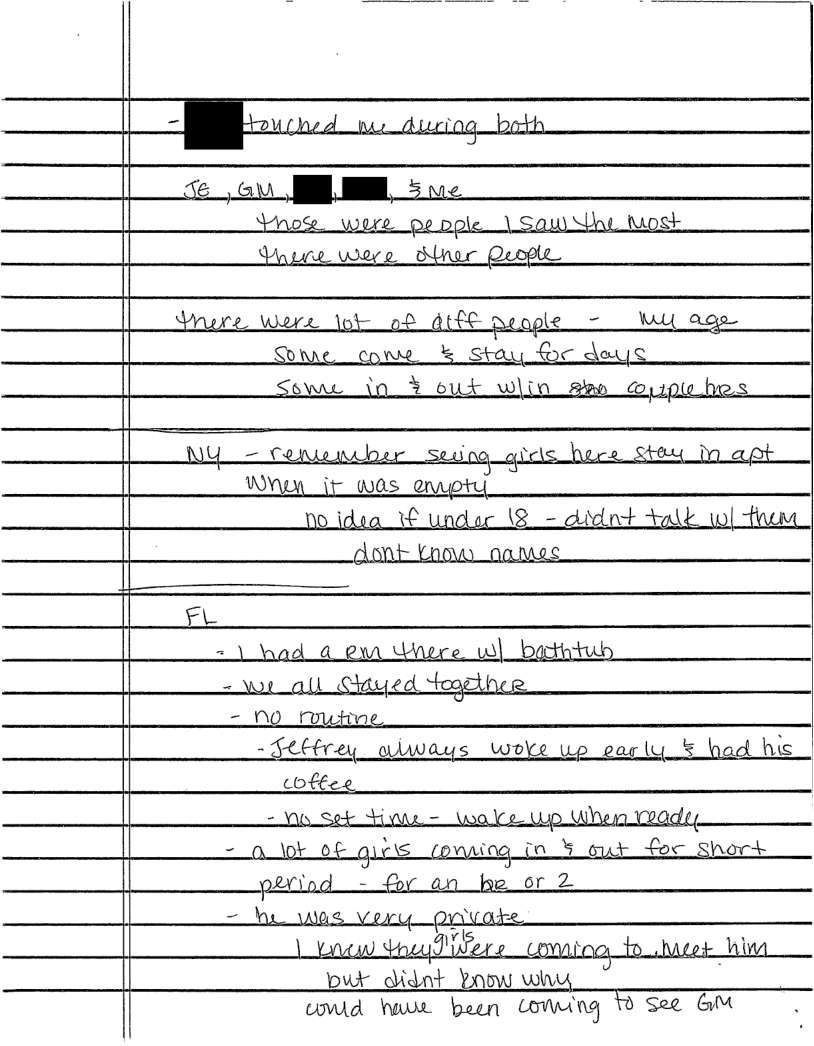 - touched me during both
JE, GM, , , & me
those were people I saw the most
there were other people
there were lot of diff people - my age
some come & stay for days
some in & out w/in couple hrs
NY - remember seeing girls here stay in apt
when it was empty
no idea if under 18 - didnt talk w/ them
dont know names
FL
- I had a rm there w/ bathtub
- we all stayed together
- no routine
- Jeffrey always woke up early & had his
coffee
- no set time - wake up when ready
- a lot of girls coming in & out for short
period - for an hr or 2
- he was very private
I knew they girls were coming to meet him
but didnt know why
could have been coming to see GM